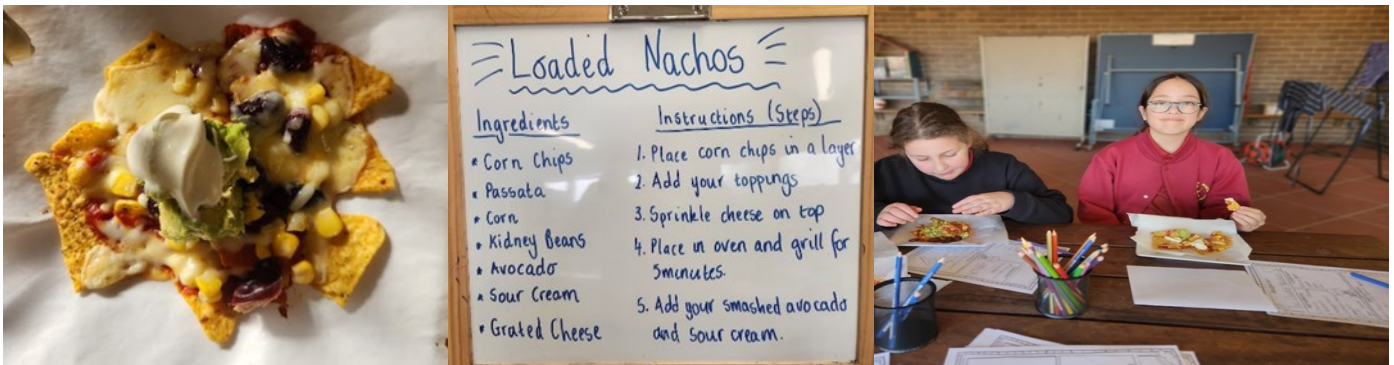 Loaded Nachos
Ingredients
* Corn Chips
* Passata
* Corn
* Kidney Beans
* Avocado
* Sour Cream
* Grated Cheese
Instructions (Steps)
1. Place corn chips in a layer
2. Add your toppings
3. Sprinkle cheese on top
4. Place in oven and grill for
5minutes.
5. Add your smashed avocado
and sour cream.